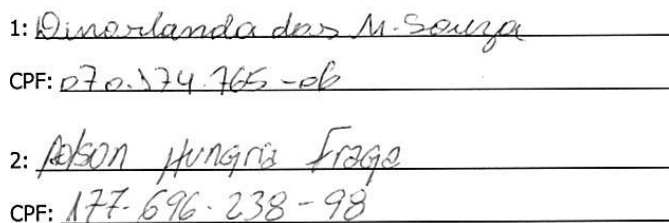 1: Dinorlanda dos M. Souza
CPF: 070.174.765-06
2: Hungria Fraga
CPF: 177.696.238-98